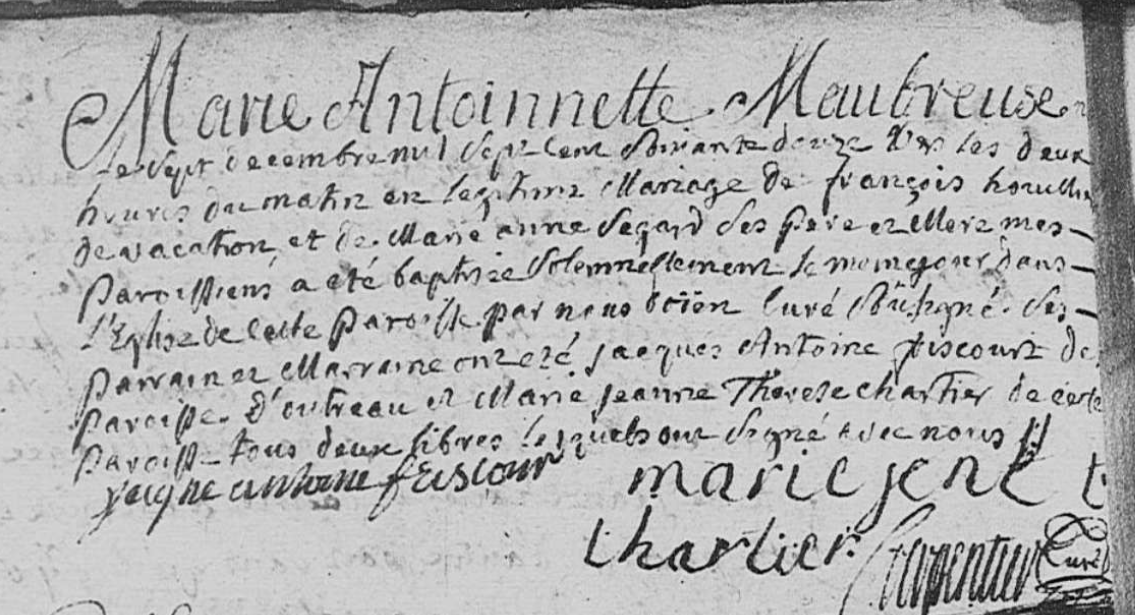 Marie Antoinnette Maubreuse
Le sept decembre mil sept cent soixante douze vers les deux
heures du matin en legitime Mariage de françois houllier
de vacation, et de Marie anne Segard Ses pere et Mere mes
paroissiens a été baptisée solemnellement le meme jour dans
l'Eglise de cette paroisse par nous Curé soussigné. Ses
parrain et Marraine ont eté jacques Antoine fiscourt de
paroisse d'outreau et Marie jeanne Therese chartier de cette
paroisse tous deux libres lesquels ont signé avec nous
antoine
marie jene t
Charlier Carpentier Curé